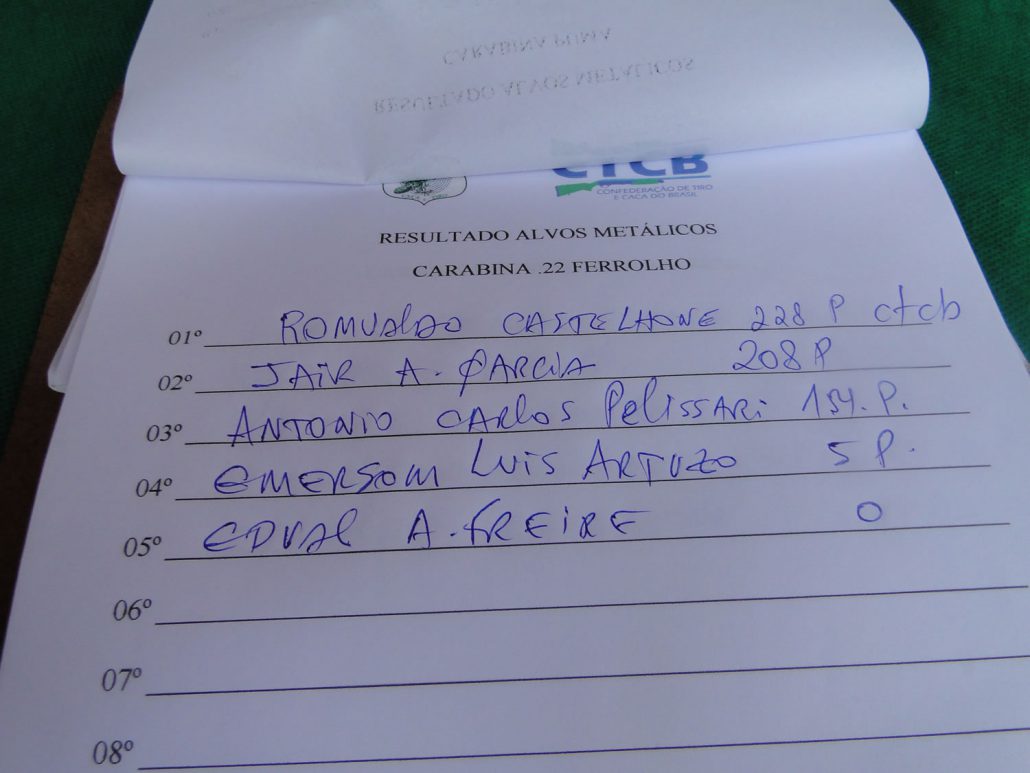 CARABINA PUMA
RESULTADO ALVOS METÁLICOS
CTCB
CONFEDERAÇÃO DE TIRO
E CAÇA DO BRASIL
RESULTADO ALVOS METÁLICOS
CARABINA .22 FERROLHO
01º ROMUALDO CASTELHONE 228 P ctcb
02º JAIR A. GARCIA 208 P
03º ANTONIO CARLOS PELISSARI 154. P.
04º EMERSOM LUIS ARTUZO 5 P.
05º EDVAL A. FREIRE 0
06º
07º
08º